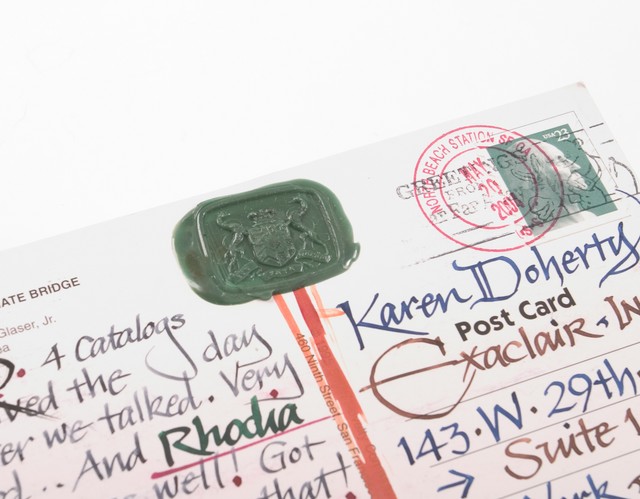 NORTH BEACH STATION SF CA
MAY
20
GREETINGS
FROM
USA 23
ATE BRIDGE
Glaser, Jr.
4 Catalogs
ved the day
er we talked. Very
And Rhodia
well! Got
that!
460 Ninth Street, San Fran
Karen Doherty
Post Card
Exaclair, In
143·W·29th
Suite 1
→